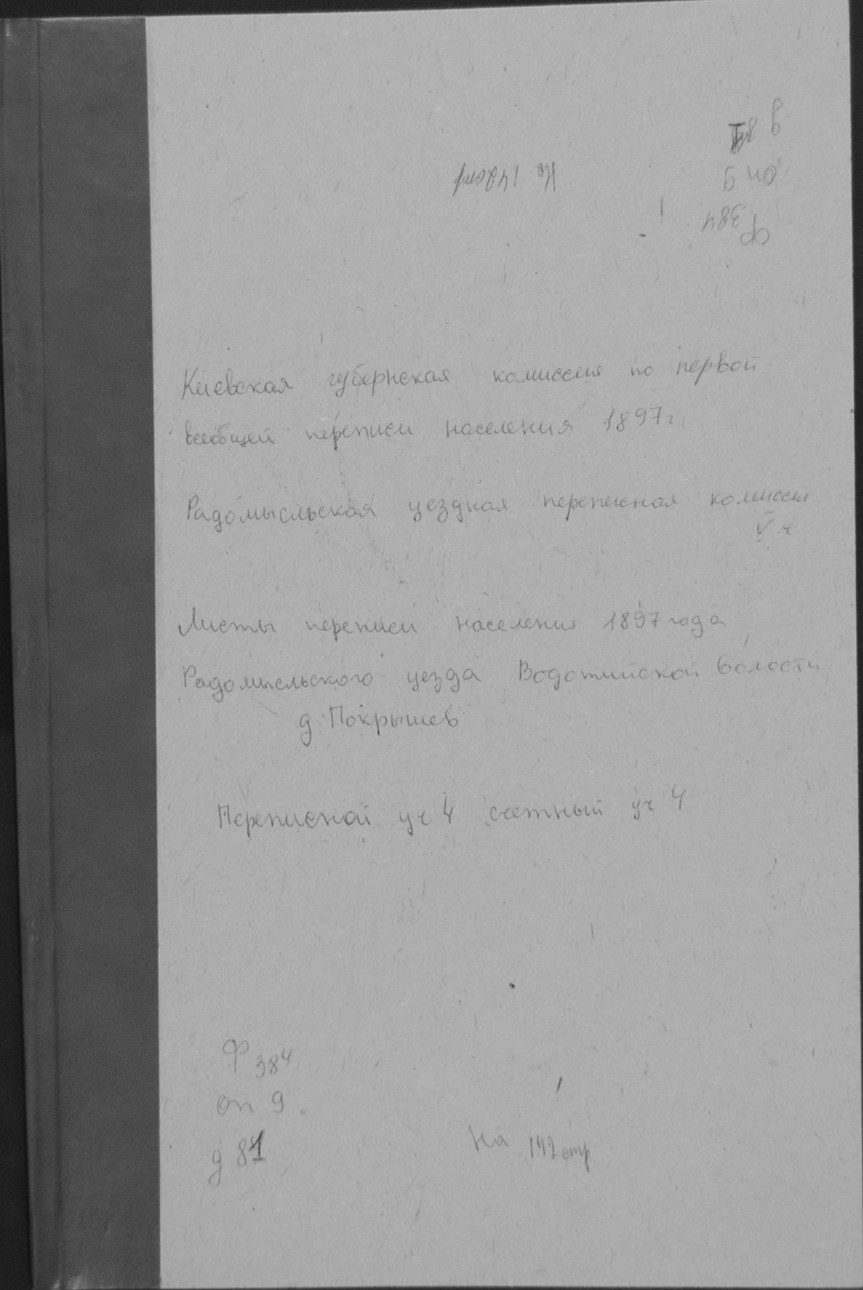 Киевская губернская комиссия по первой
всеобщей переписи населения 1897г
Радомысльская уездная переписная комиссия
V ч
Листы переписи населения 1897 года
Радомысльского уезда Водотийской волости
д Покрышев
Переписной уч 4 счетный уч 4
Ф 384
оп 9
д 81
На 142 стр
Ф 384
оп 9
д
На 142 стр